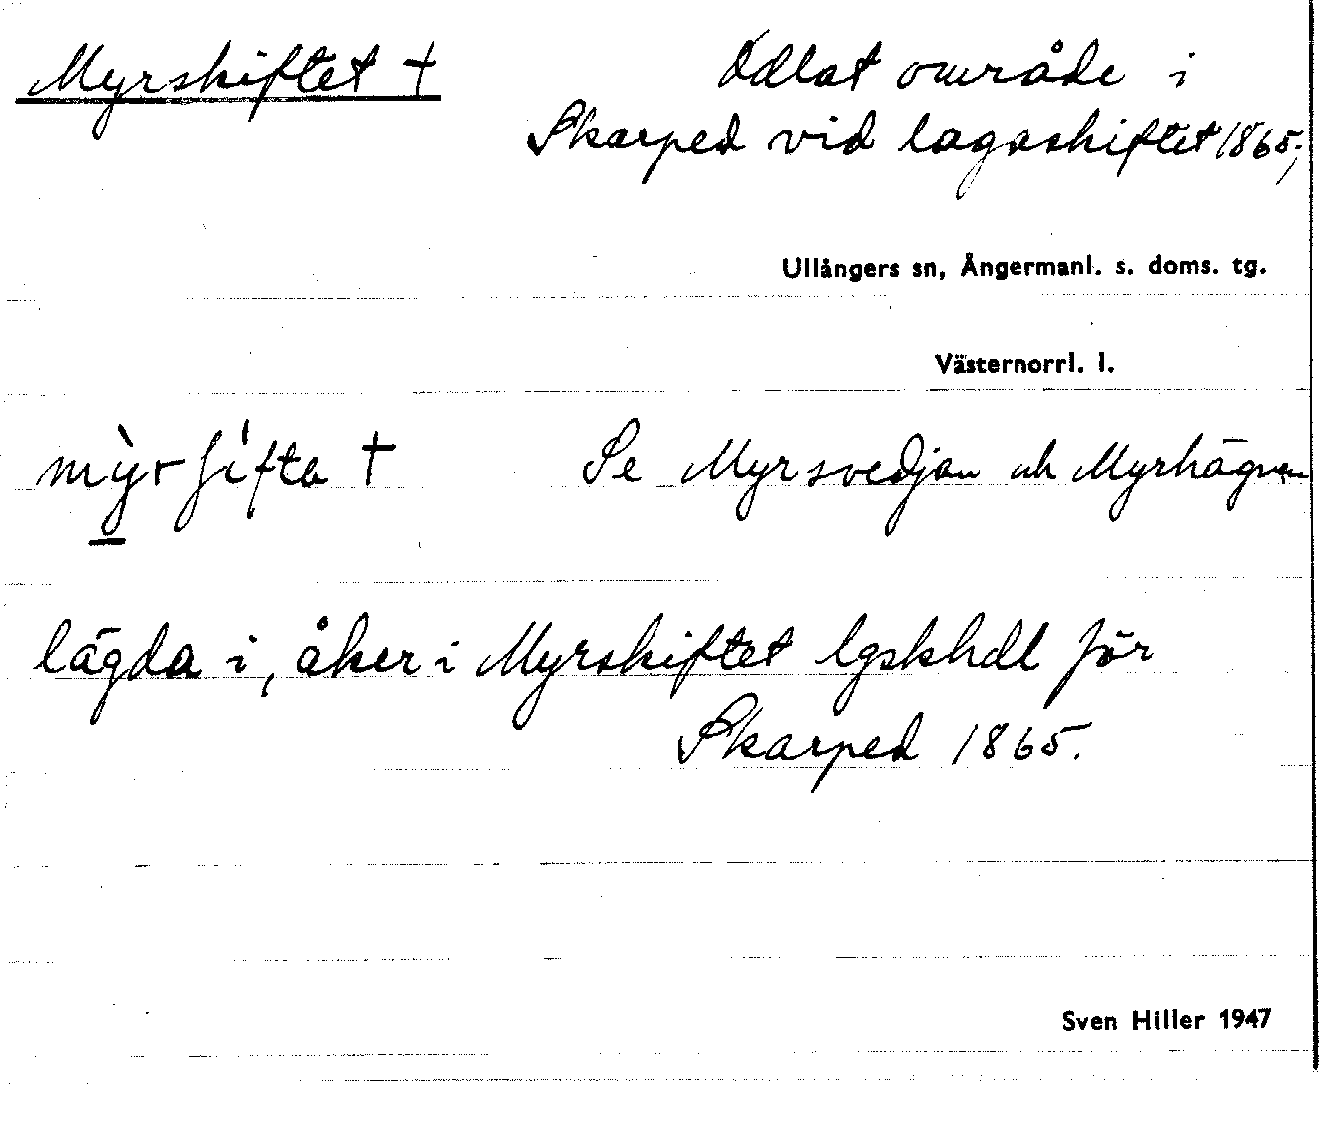 Myrskiftet † Odlat område i
Skarped vid lagaskiftet 1865;
Ullångers sn, Ångermanl. s. doms. tg.
Västernorrl. l.
mỳrʃìfta † Se Myrsvedjan och Myrhägnen
lägda i, åker i Myrskiftet lgskhdl för
Skarped 1865.
Sven Hiller 1947